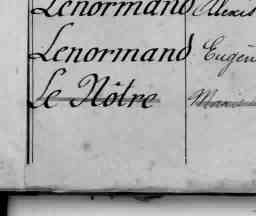 Lenormand Alexis
Lenormand Eugèn
Le Nôtre